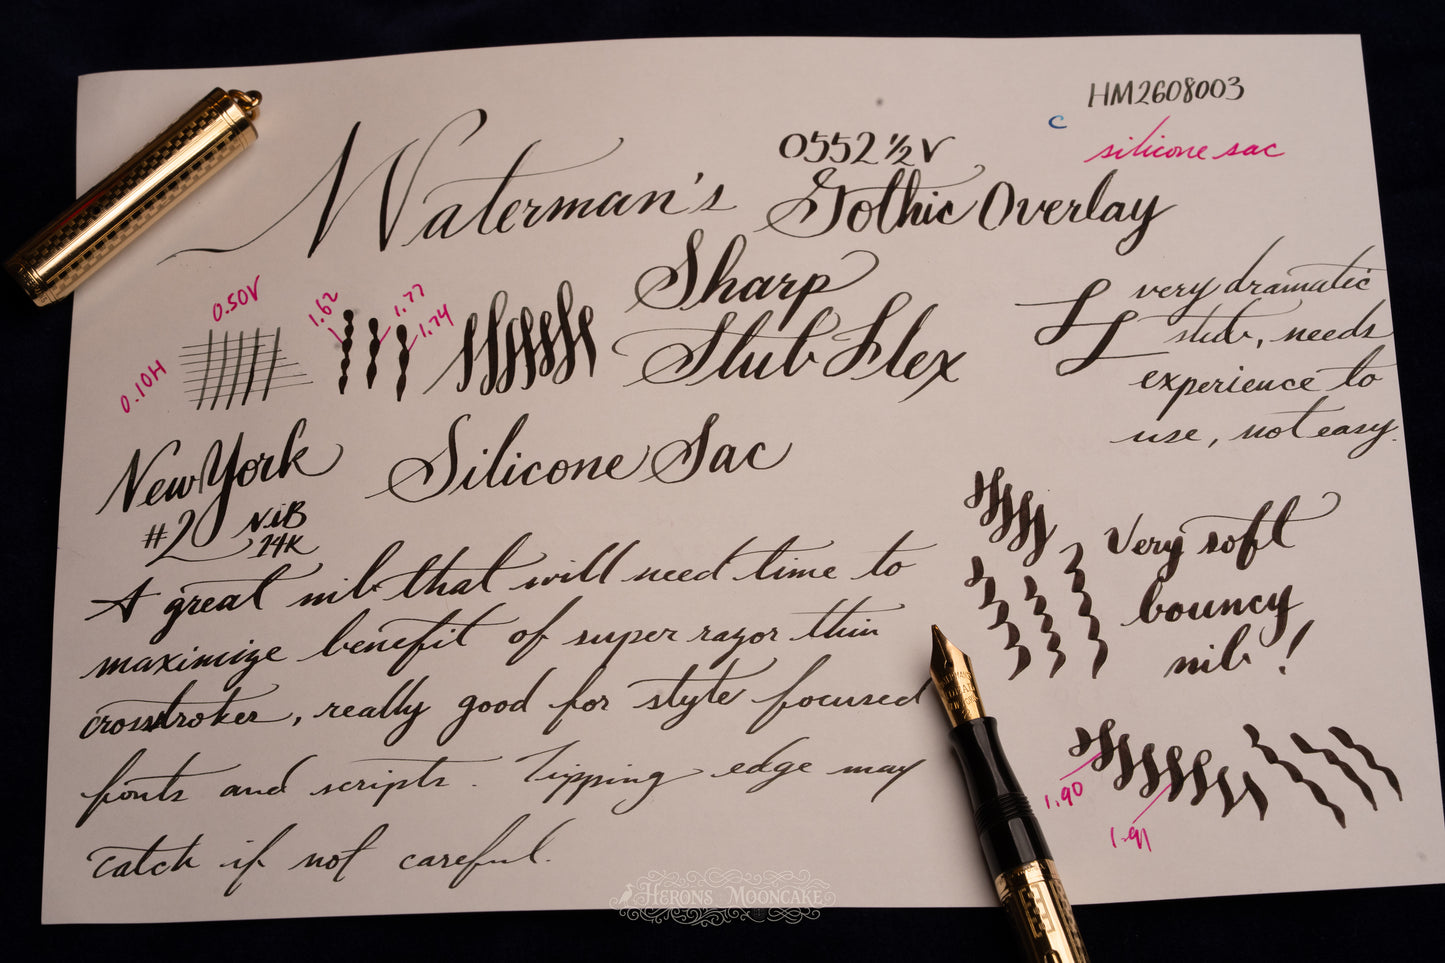 HM2608003
c
silicone sac
Waterman's
0552 ½ V
Gothic Overlay
Sharp
Stub Flex
very dramatic
stub, needs
experience to
use, not easy.
0.50V
0.10H
1.62
1.77
1.74
New York
#2 NiB
14K
Silicone Sac
A great nib that will need time to
maximize benefit of super razor thin
crosstroker, really good for style focused
fonts and scripts. Tipping edge may
catch if not careful.
Very soft
bouncy
nib!
1.90
1.91
HERONS MOONCAKE